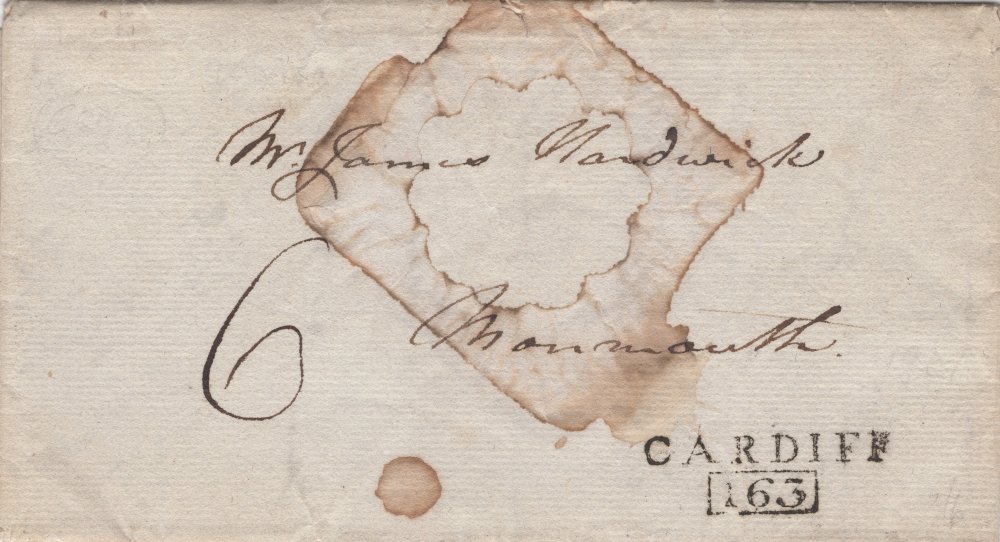 Mr. James Hardwick
6
Monmouth.
CARDIFF
163